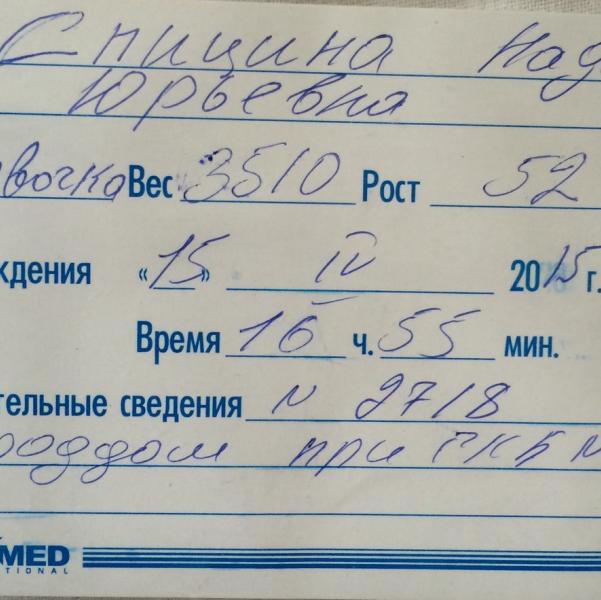 Спицина Над
Юрьевна
вочка Вес 3510 Рост 52
ждения «15» IV 2015 г.
Время 16 ч. 55 мин.
тельные сведения N 2718
роддом при ГКБ N
MED
TIONAL